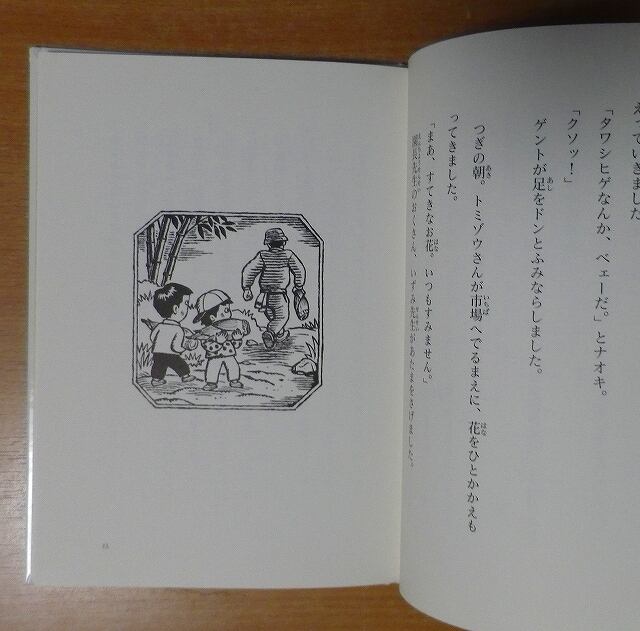 えっていきました
「タワシヒゲなんか、ベェーだ。」とナオキ。
「クソッ！」
ゲントが足をドンとふみならしました。
つぎの朝。トミゾウさんが市場へでるまえに、花をひとかかえも
ってきました。
「まあ、すてきなお花。いつもすみません。」
園長先生のおくさん、いずみ先生があたまをさげました。